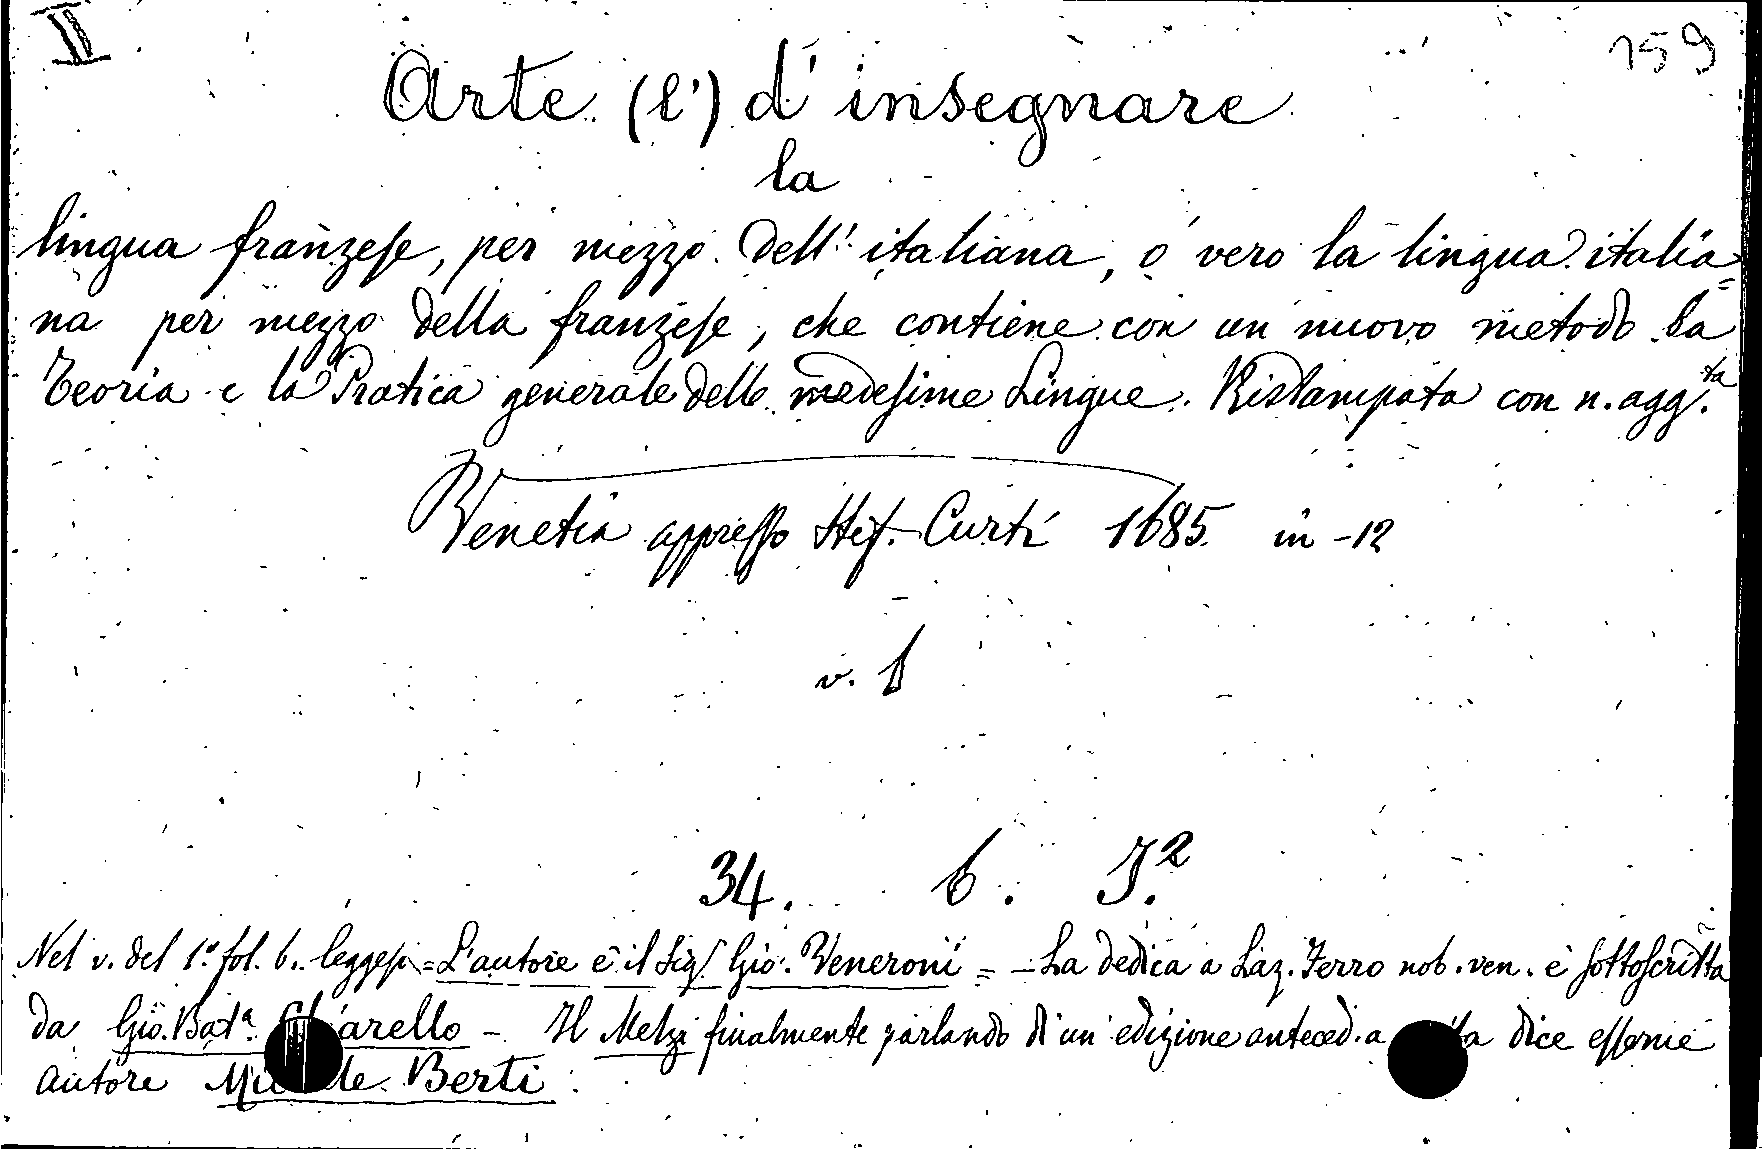 II 159
Arte (l') d' insegnare
la
lingua franzese, per mezzo dell' italiana, o vero la lingua italia=
na per mezzo della franzese, che contiene con un nuovo metodo la
Teoria e la Pratica generale delle medesime Lingue. Ristampata con n. agg.ta
Venetia appresso Stef. Curti 1685. in-12
v. b
34. b. J.2
Nel v. del 1.º fol. b. leggesi = L'autore è il Sigr Gio. Veneroni = - La dedica a Laz. Ferro nob. ven. è sottoscritta
da Gio. Bat.a arello - Il Melzi finalmente parlando di un' edizione anteced. a dice esserne
autore Michele Berti.